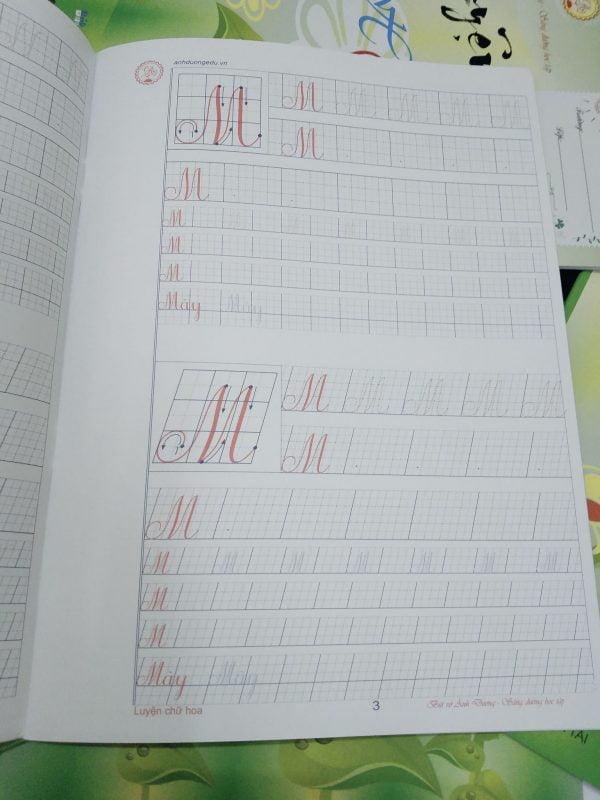 anhduongedu.vn
M M M M M
M
M
M
M
M
Mây Mây
M M M M M
M
M
M M M M M M M
M
M
Mây Mây
Luyện chữ hoa 3 Bút vở Ánh Dương - Sáng đường học tập